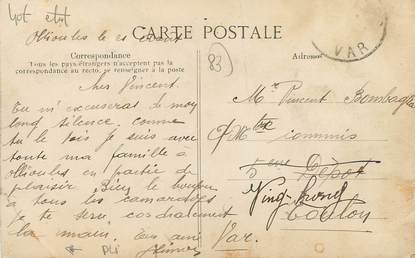 CARTE POSTALE
Ollioules le 21
VAR
83
Correspondance
Tous les pays étrangers n'acceptent pas la
correspondance au recto, se renseigner à la poste
Adresse
Cher Vincent.
Tu m'excuserat de mon
long silence. comme
tu le vois je suis avec
toute ma famille à
Ollioules en partie de
plaisir. Bien le bonjour
à tous les camarades
Je te serre cordialement
la main. Ton ami
Mr Vincent
Qr Mtre
5eme Dépot
Toulon
Var.